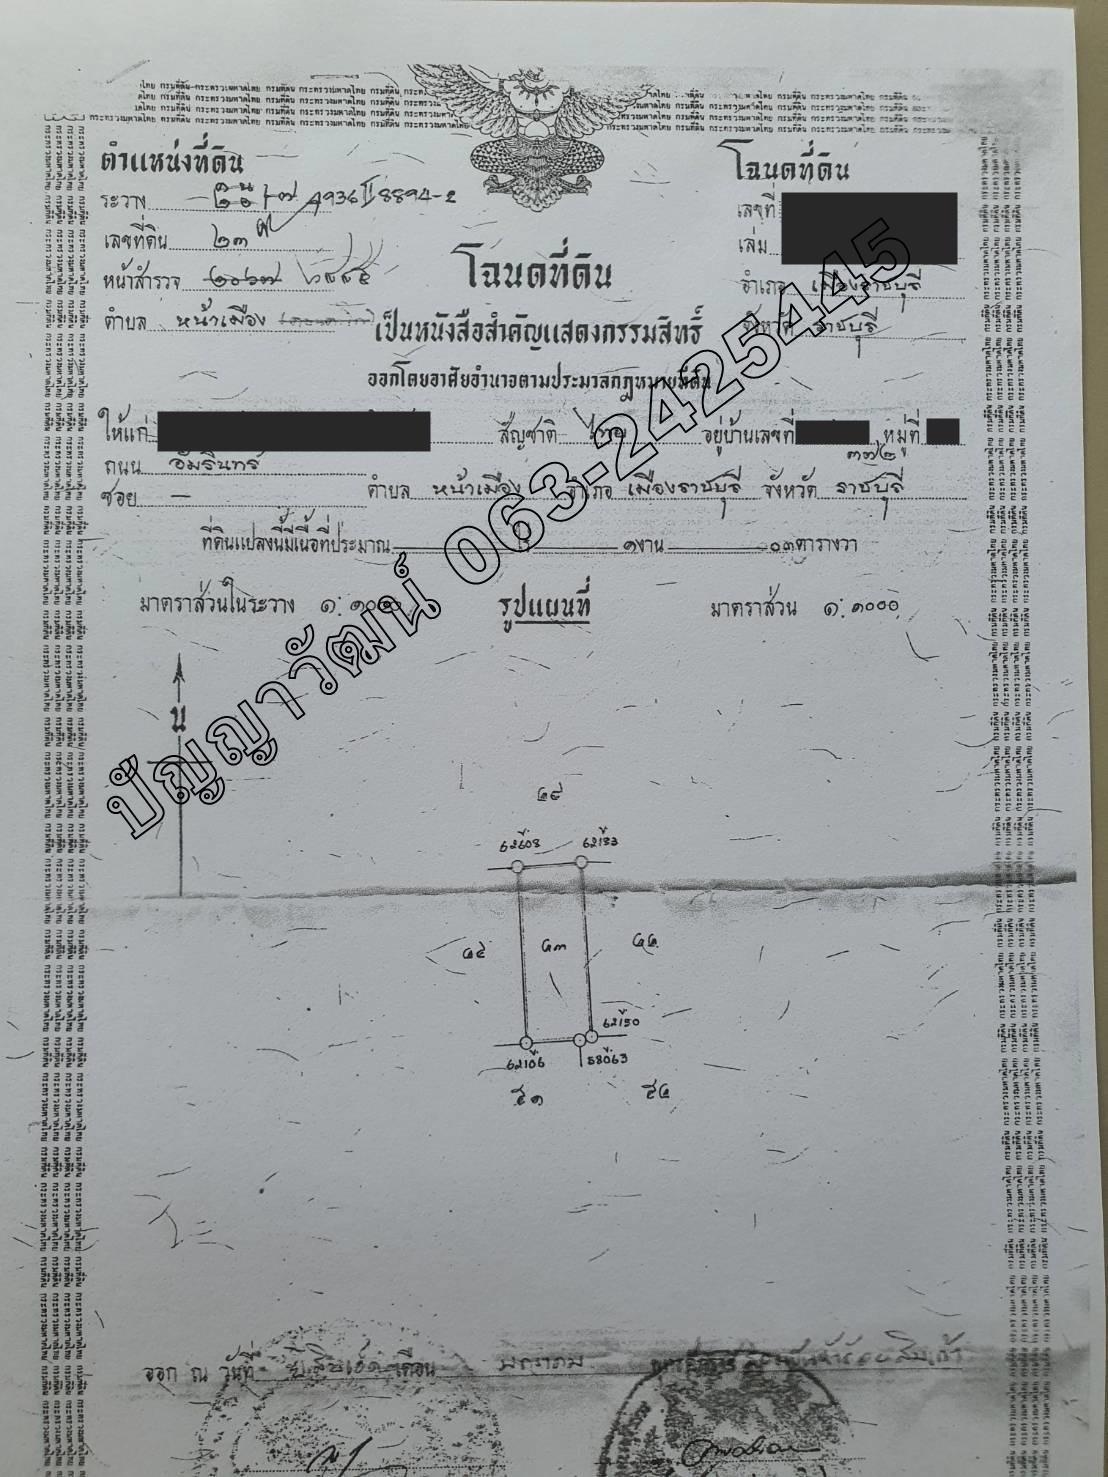 ตำแหน่งที่ดิน
ระวาง 4936 II 8894-2
เลขที่ดิน ๒๓
หน้าสำรวจ
ตำบล หน้าเมือง
โฉนดที่ดิน
เลขที่
เล่ม
อำเภอ เมืองราชบุรี
จังหวัด ราชบุรี
โฉนดที่ดิน
เป็นหนังสือสำคัญแสดงกรรมสิทธิ์
ออกโดยอาศัยอำนาจตามประมวลกฎหมายที่ดิน
ให้แก่ สัญชาติ ไทย อยู่บ้านเลขที่ หมู่ที่
ถนน อัมรินทร์ ๓๓๒
ซอย - ตำบล หน้าเมือง อำเภอ เมืองราชบุรี จังหวัด ราชบุรี
ที่ดินแปลงนี้มีเนื้อที่ประมาณ ไร่ ๑ งาน ๐๓ ตารางวา
มาตราส่วนในระวาง ๑:๑๐๐๐ รูปแผนที่ มาตราส่วน ๑:๑๐๐๐
น
ปัญญาวัฒน์ 063-2425445
๔๙
62608 62133
๔๕ ๔๓ ๔๒
62150
62106 58063
๕๑ ๕๔
ออก ณ วันที่ เดือน มกราคม